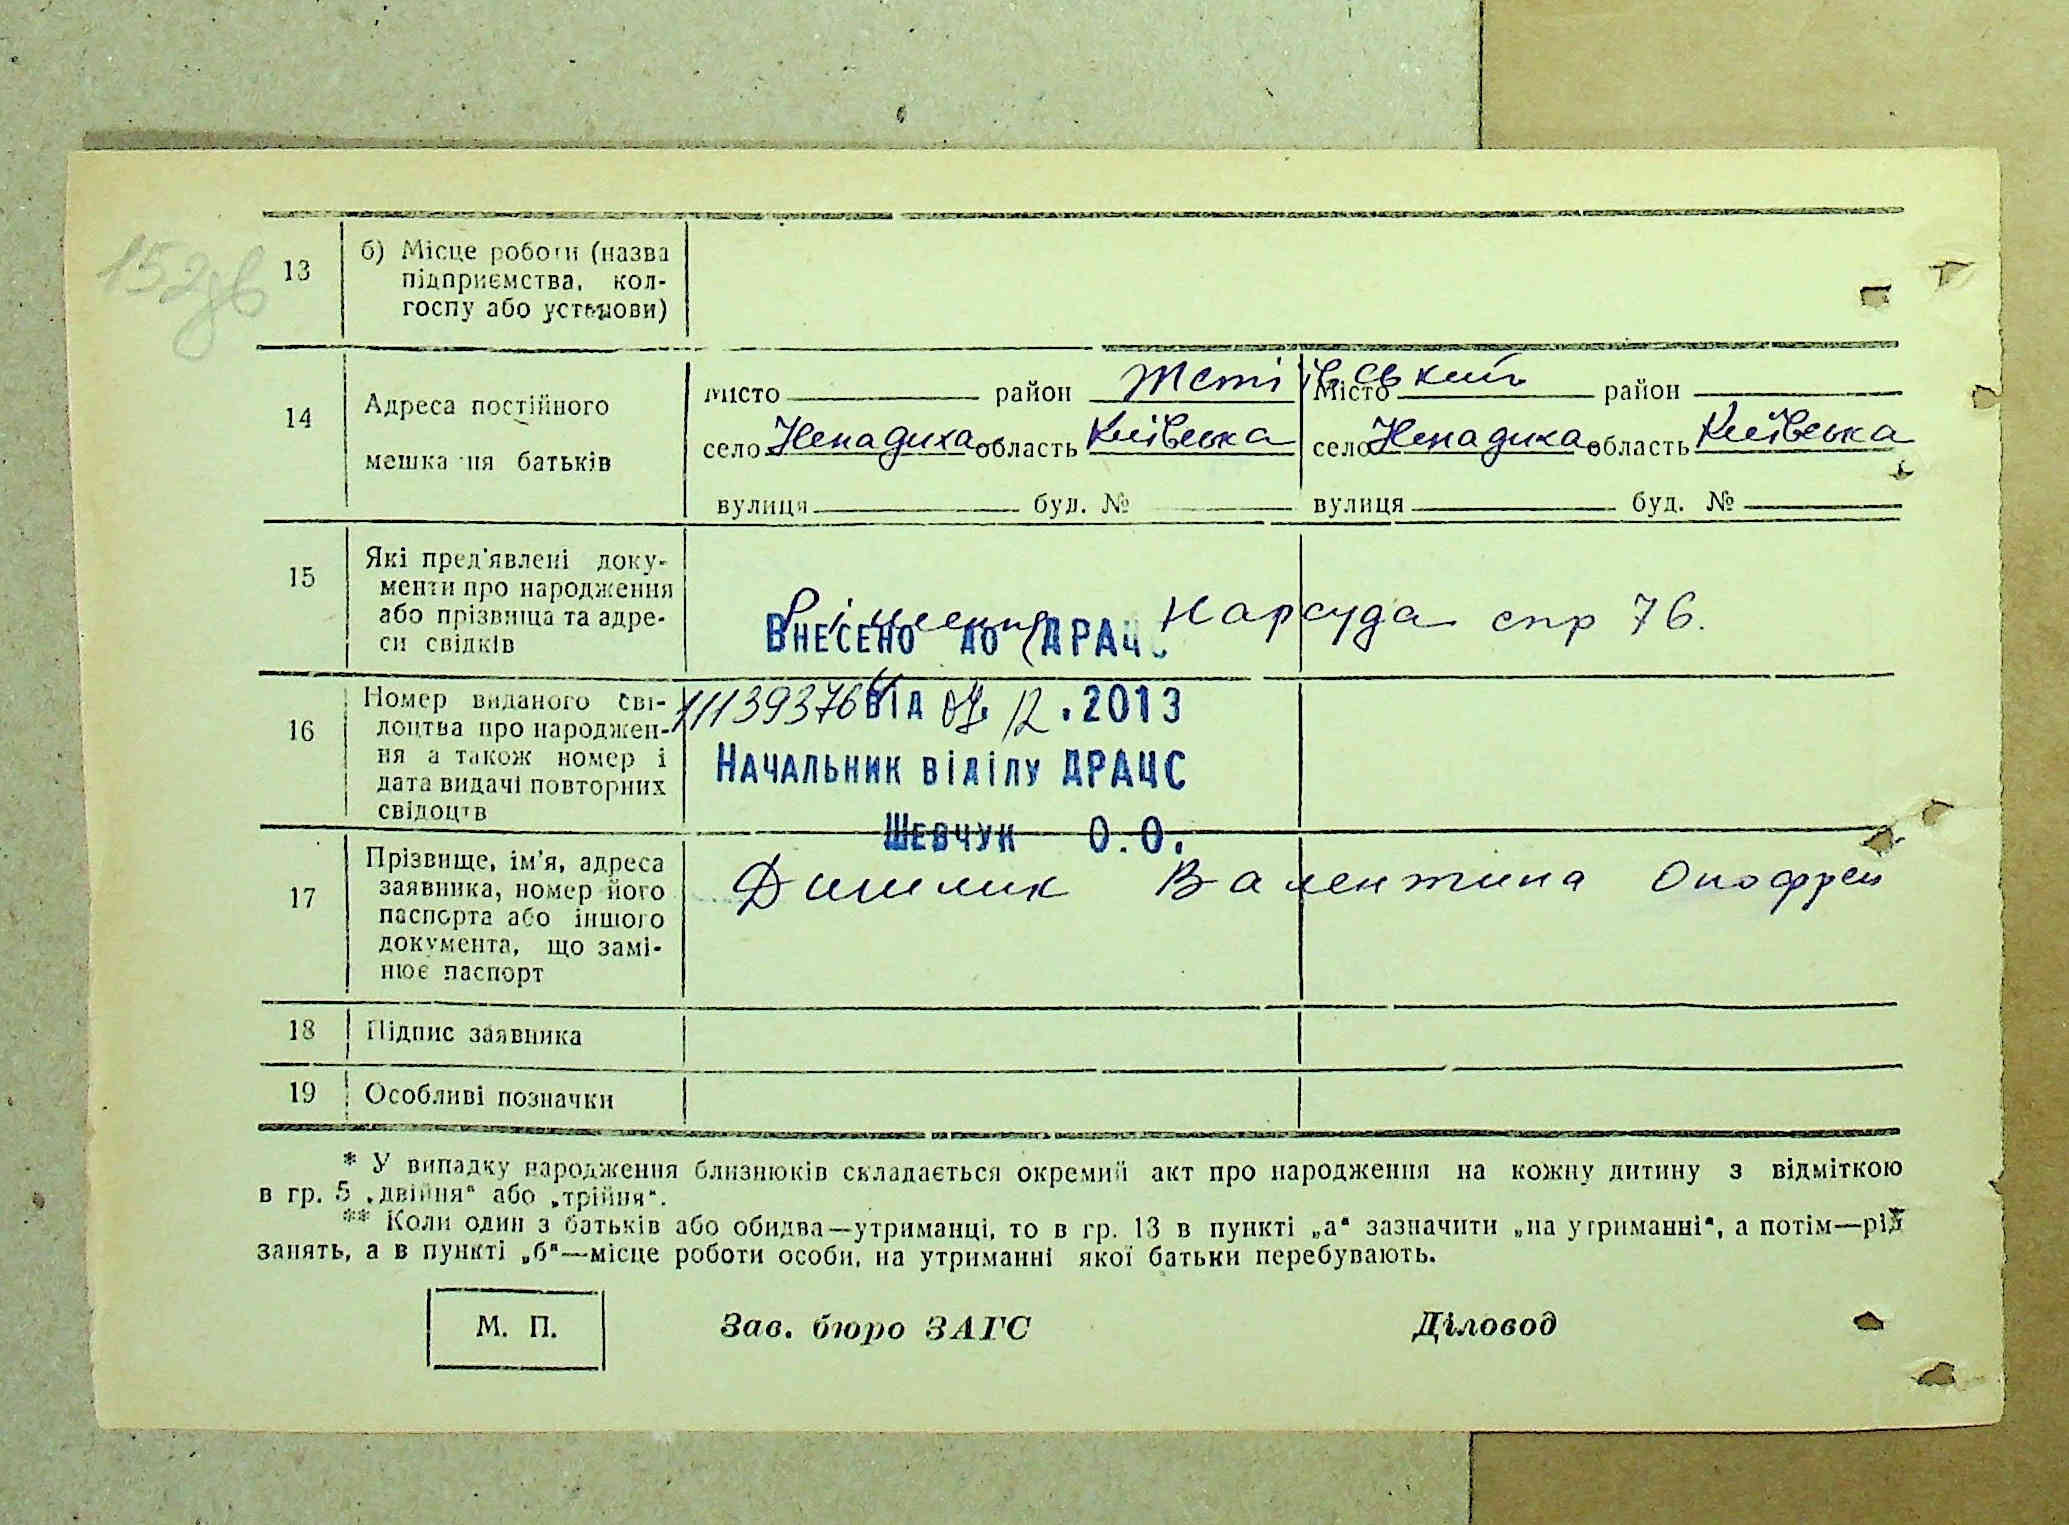 152зв
13 б) Місце роботи (назва
підприємства, кол-
госпу або установи)
14 Адреса постійного
мешкання батьків
місто район Тетіївський місто район
село Ненадиха область Київська село Ненадиха область Київська
вулиця буд. № вулиця буд. №
15 Які пред'явлені доку-
менти про народження
або прізвища та адре-
си свідків
Рішення Нарсуда спр 76.
Внесено до ДРАЦС
16 Номер виданого сві-
доцтва про народжен-
ня а також номер і
дата видачі повторних
свідоцтв
від 12.2013
Начальник відділу ДРАЦС
Шевчук О.О.
17 Прізвище, ім'я, адреса
заявника, номер його
паспорта або іншого
документа, що замі-
нює паспорт
Валентина
18 Підпис заявника
19 Особливі позначки
* У випадку народження близнюків складається окремий акт про народження на кожну дитину з відміткою
в гр. 5 „двійня“ або „трійня“.
** Коли один з батьків або обидва—утриманці, то в гр. 13 в пункті „а“ зазначити „на утриманні“, а потім—рід
занять, а в пункті „б“—місце роботи особи, на утриманні якої батьки перебувають.
М. П. Зав. бюро ЗАГС Діловод